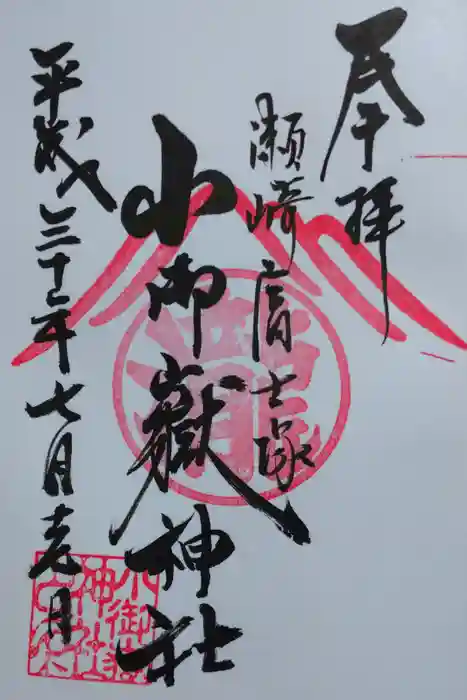 奉拝
瀬崎富士塚
小御嶽神社
平成三十年七月壱日
小御嶽神社